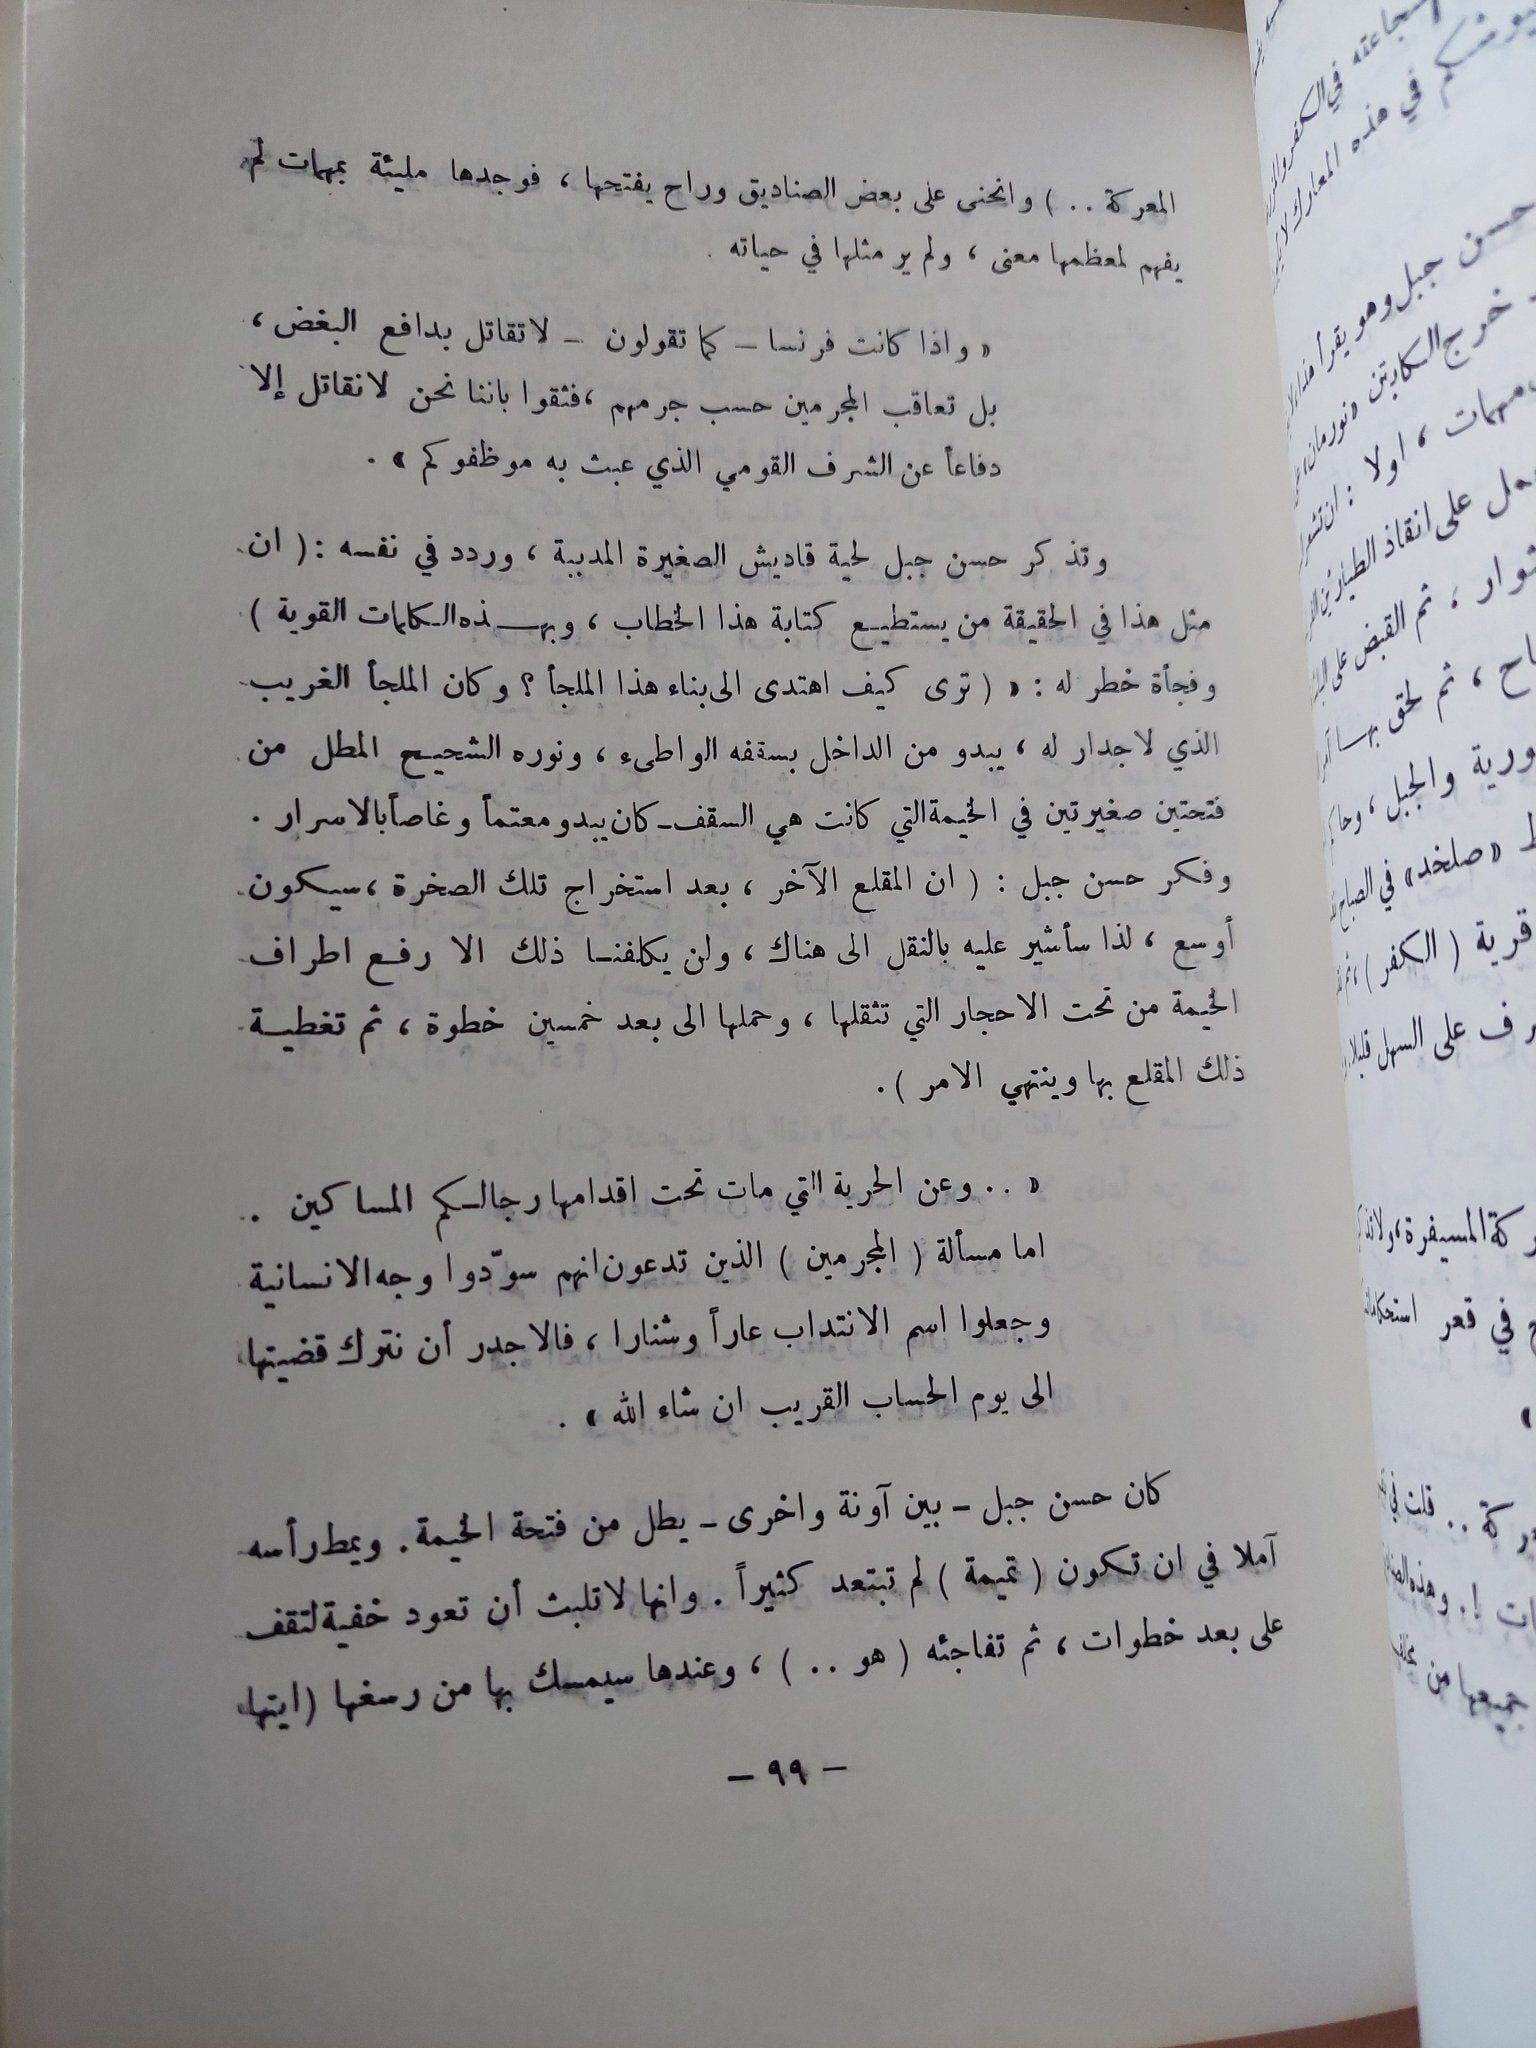 المعركة . . ) وانحنى على بعض الصناديق وراح يفتحها ، فوجدها مليئة بمهات لم
يفهم لمعظمها معنى ، ولم ير مثلها في حياته .
« واذا كانت فرنسا – كما تقولون – لاتقاتل بدافع البغض ،
بل تعاقب المجرمين حسب جرمهم ، فثقوا باننا نحن لانقاتل إلا
دفاعاً عن الشرف القومي الذي عبث به موظفوكم » .
وتذكر حسن جبل لحية قاديش الصغيرة المدببة ، وردد في نفسه : ( ان
مثل هذا في الحقيقة من يستطيع كتابة هذا الخطاب ، وبهذه الكلمات القوية )
وفجأة خطر له : « ( ترى كيف اهتدى الى بناء هذا الملجأ ؟ وكان الملجأ الغريب
الذي لاجدار له ، يبدو من الداخل بسقفه الواطىء ، ونوره الشحيح المطل من
فتحتين صغيرتين في الخيمة التي كانت هي السقف – كان يبدو معتماً وغاصاً بالاسرار .
وفكر حسن جبل : ( ان المقلع الآخر ، بعد استخراج تلك الصخرة ، سيكون
أوسع ، لذا سأشير عليه بالنقل الى هناك ، ولن يكلفنا ذلك الا رفع اطراف
الخيمة من تحت الاحجار التي تثقلها ، وحملها الى بعد خمسين خطوة ، ثم تغطية
ذلك المقلع بها وينتهي الامر ) .
« . . وعن الحرية التي مات تحت اقدامها رجالكم المساكين .
اما مسألة ( المجرمين ) الذين تدعون انهم سوّدوا وجه الانسانية
وجعلوا اسم الانتداب عاراً وشنارا ، فالاجدر أن نترك قضيتها
الى يوم الحساب القريب ان شاء الله » .
كان حسن جبل – بين آونة واخرى – يطل من فتحة الخيمة . ويمط رأسه
آملا في ان تكون ( تميمة ) لم تبتعد كثيراً . وانها لاتلبث أن تعود خفية لتقف
على بعد خطوات ، ثم تفاجئه ( هو . . ) ، وعندها سيمسك بها من رسغها ( ايتها
– ٩٩ –
شجاعته في الكفر
في هذه المعارك
حسن جبل وهو يقرأ هذا
خرج الكابتن «نورمان»
مهمات ، اولا : ان تشعر
على انقاذ الطيارين
ثم القبض على
، ثم لحق بهسا
والجبل ،
«صلخد» في الصباح
قرية ( الكفر ) ،
على السهل قليلا
المسيفرة ، ولا
في قعر
. . قلت في
!. وهذه
جميعها من